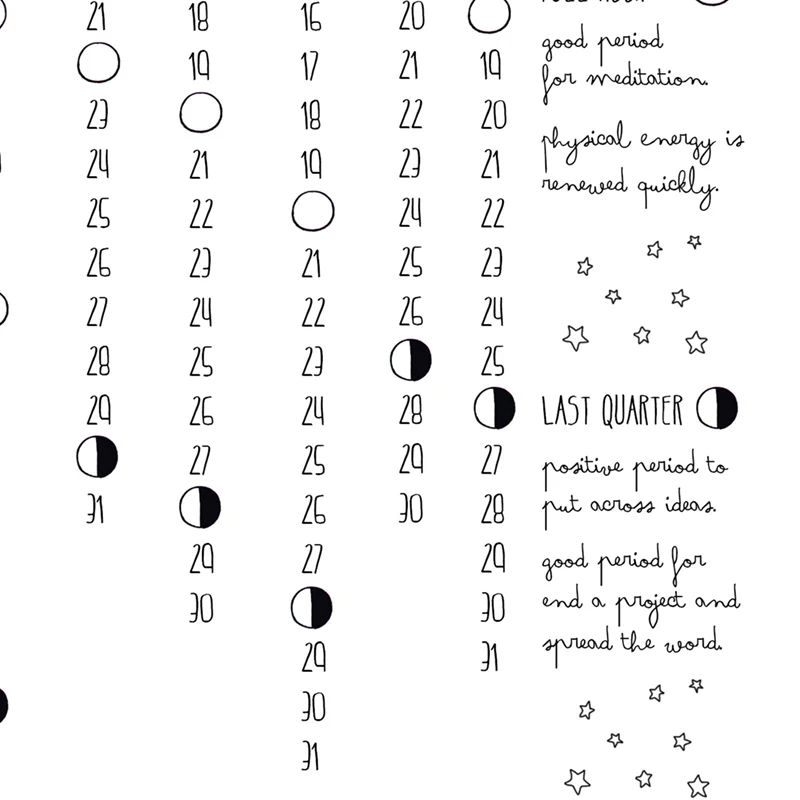 21
23
24
25
26
27
28
29
31
18
19
21
22
23
24
25
26
27
29
30
16
17
18
19
21
22
23
24
25
26
27
29
30
31
20
21
22
23
24
25
26
28
29
30
19
20
21
22
23
24
25
27
28
29
30
31
good period
for meditation.
physical energy is
renewed quickly.
LAST QUARTER
positive period to
put across ideas.
good period for
end a project and
spread the word.